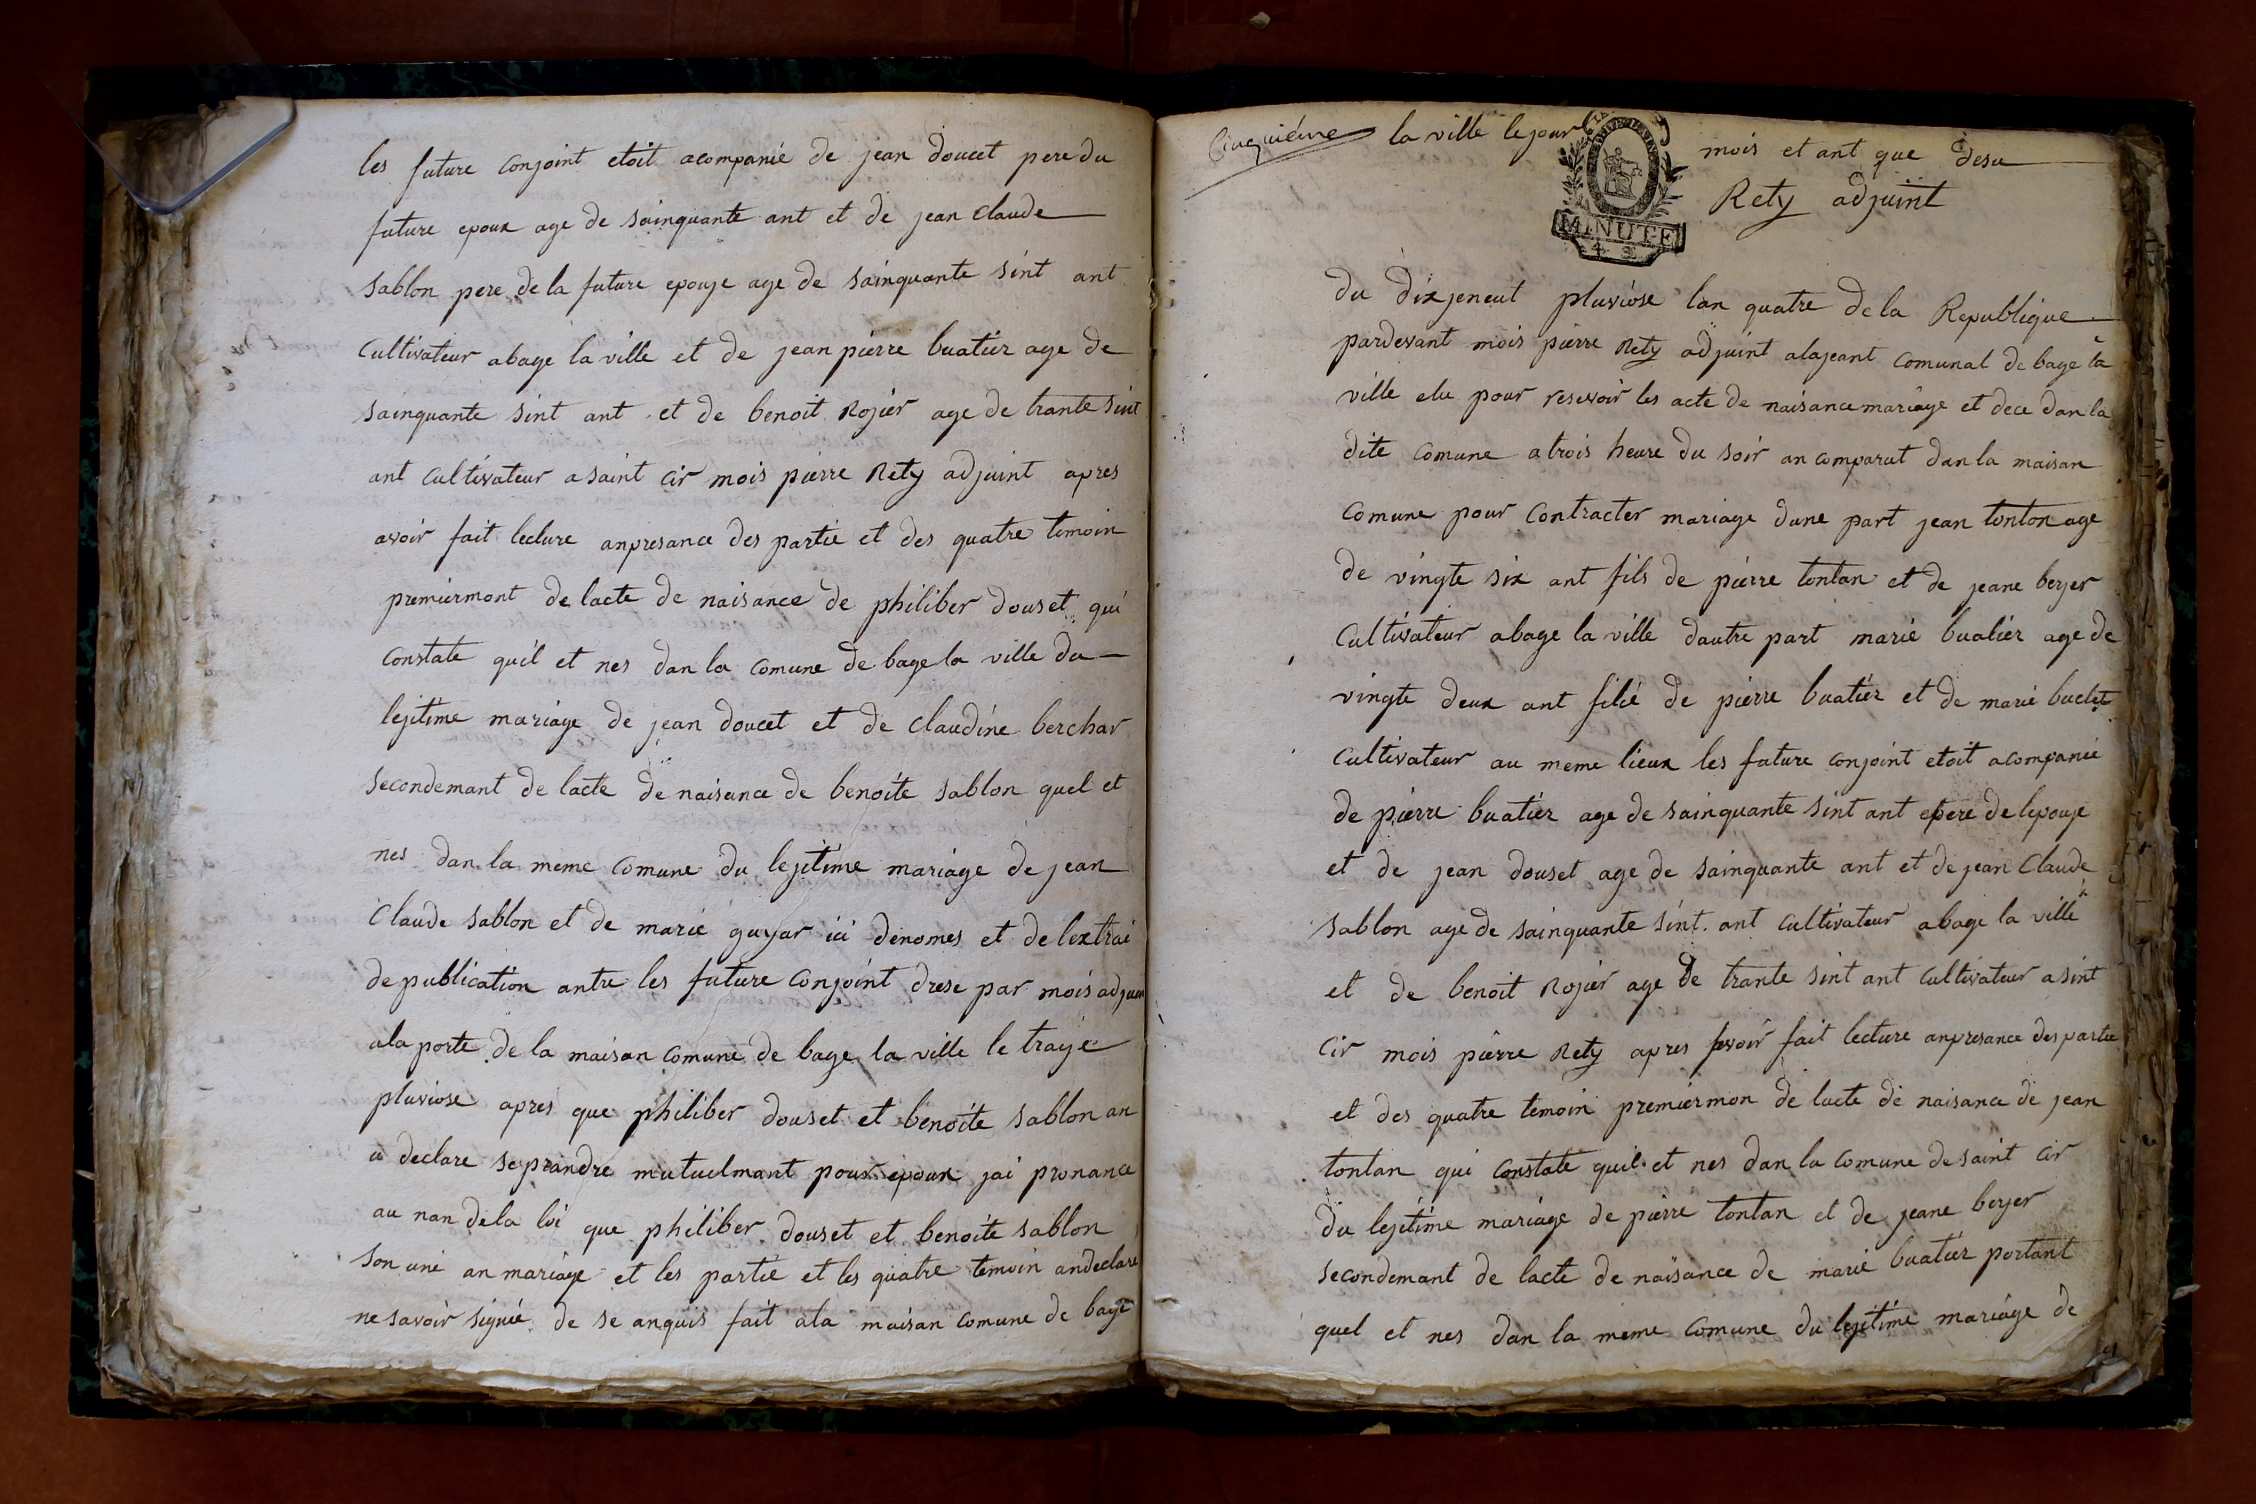 les future conjoint etoit acompanié de jean doucet pere du
future epoux age de sainquante ant et de jean claude
sablon pere de la future epouje age de sainquante sint ant
cultivateur abage la ville et de jean pierre buatier age de
sainquante sint ant et de benoit Rojier age de trante sint
ant cultivateur a saint cir mois pierre Rety adjuint apres
avoir fait lecture anpresance des partie et des quatre temoin
premiermont de lacte de naisance de philiber douset qui
constate quil et nes dan la comune de bage la ville du
lejitime mariage de jean doucet et de claudine berchar
secondemant de lacte de naisance de benoite sablon quel et
nes dan la meme comune du lejitime mariage de jean
Claude sablon et de marie guyar ici denomes et de lextrai
de publication antre les future conjoint drese par mois adjuin
ala porte de la maisan comune de bage la ville le traije
pluviose apres que philiber douset et benoite sablon an
u declare se prandre mutuelmant pour epoux jai pronance
au nan de la loi que philiber douset et benoite sablon
son uni an mariage et les partie et les quatre temoin andeclare
ne savoir signié de se anquis fait ala maisan comune de bage
Cinquiéme la ville le jour mois et ant que desu
Rety adjuint
MINUTE
du dixjeneut pluviose lan quatre de la Republique
pardevant mois pierre Rety adjuint alajeant comunal de bage la
ville elu pour resevoir les acte de naisance mariage et dece dan la
dite comune a trois heure du soir an comparut dan la maisan
comune pour contracter mariage dune part jean tonton age
de vingte six ant fils de pierre tontan et de jeane berjer
cultivateur abage la ville dautre part marie buatier age de
vingte deux ant filié de pierre buatier et de marie buclet
cultivateur au meme lieux les future conjoint etoit acompanié
de pierre buatier age de sainquante sint ant epere de lepouje
et de jean douset age de sainquante ant et de jean Claude
sablon age de sainquante sint ant cultivateur abage la ville
et de benoit Rojier age de trante sint ant cultivateur a sint
cir mois pierre Rety apres avoir fait lecture anpresance des partie
et des quatre temoin premiermon de lacte de naisance de jean
tontan qui constate quil et nes dan la comune de saint cir
du lejitime mariage de pierre tontan et de jeane berjer
secondemant de lacte de naisance de marie buatier portant
quel et nes dan la meme comune du lejitime mariage de